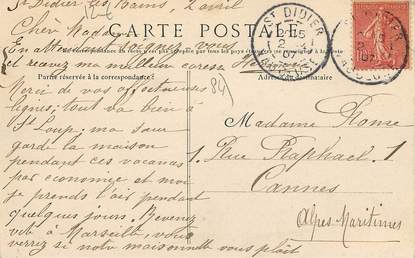 St Didier les Bains, 2 avril
12-6
CARTE POSTALE
Chère Madame
En attendant
et recevez ma meilleure caresse
Partie réservée à la correspondance
Adresse du destinataire
Merci de vos affectueuses
lignes; tout va bien à
St Loup; ma sœur
garde la maison
pendant ces vacances
par économie et moi
je prends l'air pendant
quelques jours. Revenez
vite à Marseille, vous
verrez si notre maisonnette vous plait
84
ST DIDIER
2
07
VAUCLUSE
Madame
1, Rue Raphael, 1
Cannes
Alpes-Maritimes